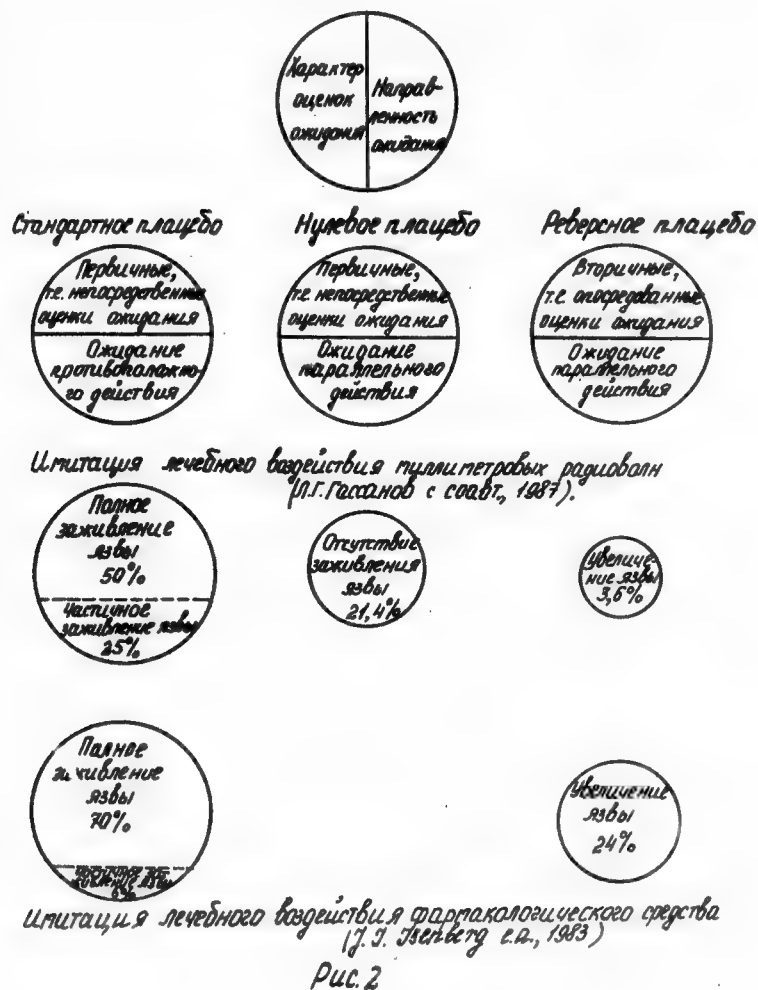 Характер
оценок
ожидания
Направ-
ленность
ожидания
Стандартное плацебо
Нулевое плацебо
Реверсное плацебо
Первичные,
т.е. непосредственные
оценки ожидания
Ожидание
противоположно-
го действия
Первичные,
т.е. непосредственные
оценки ожидания
Ожидание
параллельного
действия
Вторичные,
т.е. опосредованные
оценки ожидания
Ожидание
параллельного
действия
Имитация лечебного воздействия миллиметровых радиоволн
(Л.Г. Гассанов с соавт., 1987).
Полное
заживление
язвы
50%
Частичное
заживление язвы
25%
Отсутствие
заживления
язвы
21,4%
Увеличе-
ние язвы
3,6%
Полное
заживление
язвы
70%
живление язвы
6%
Увеличение
язвы
24%
Имитация лечебного воздействия фармакологического средства
(J.I. Isenberg e.a., 1983)
Рис. 2